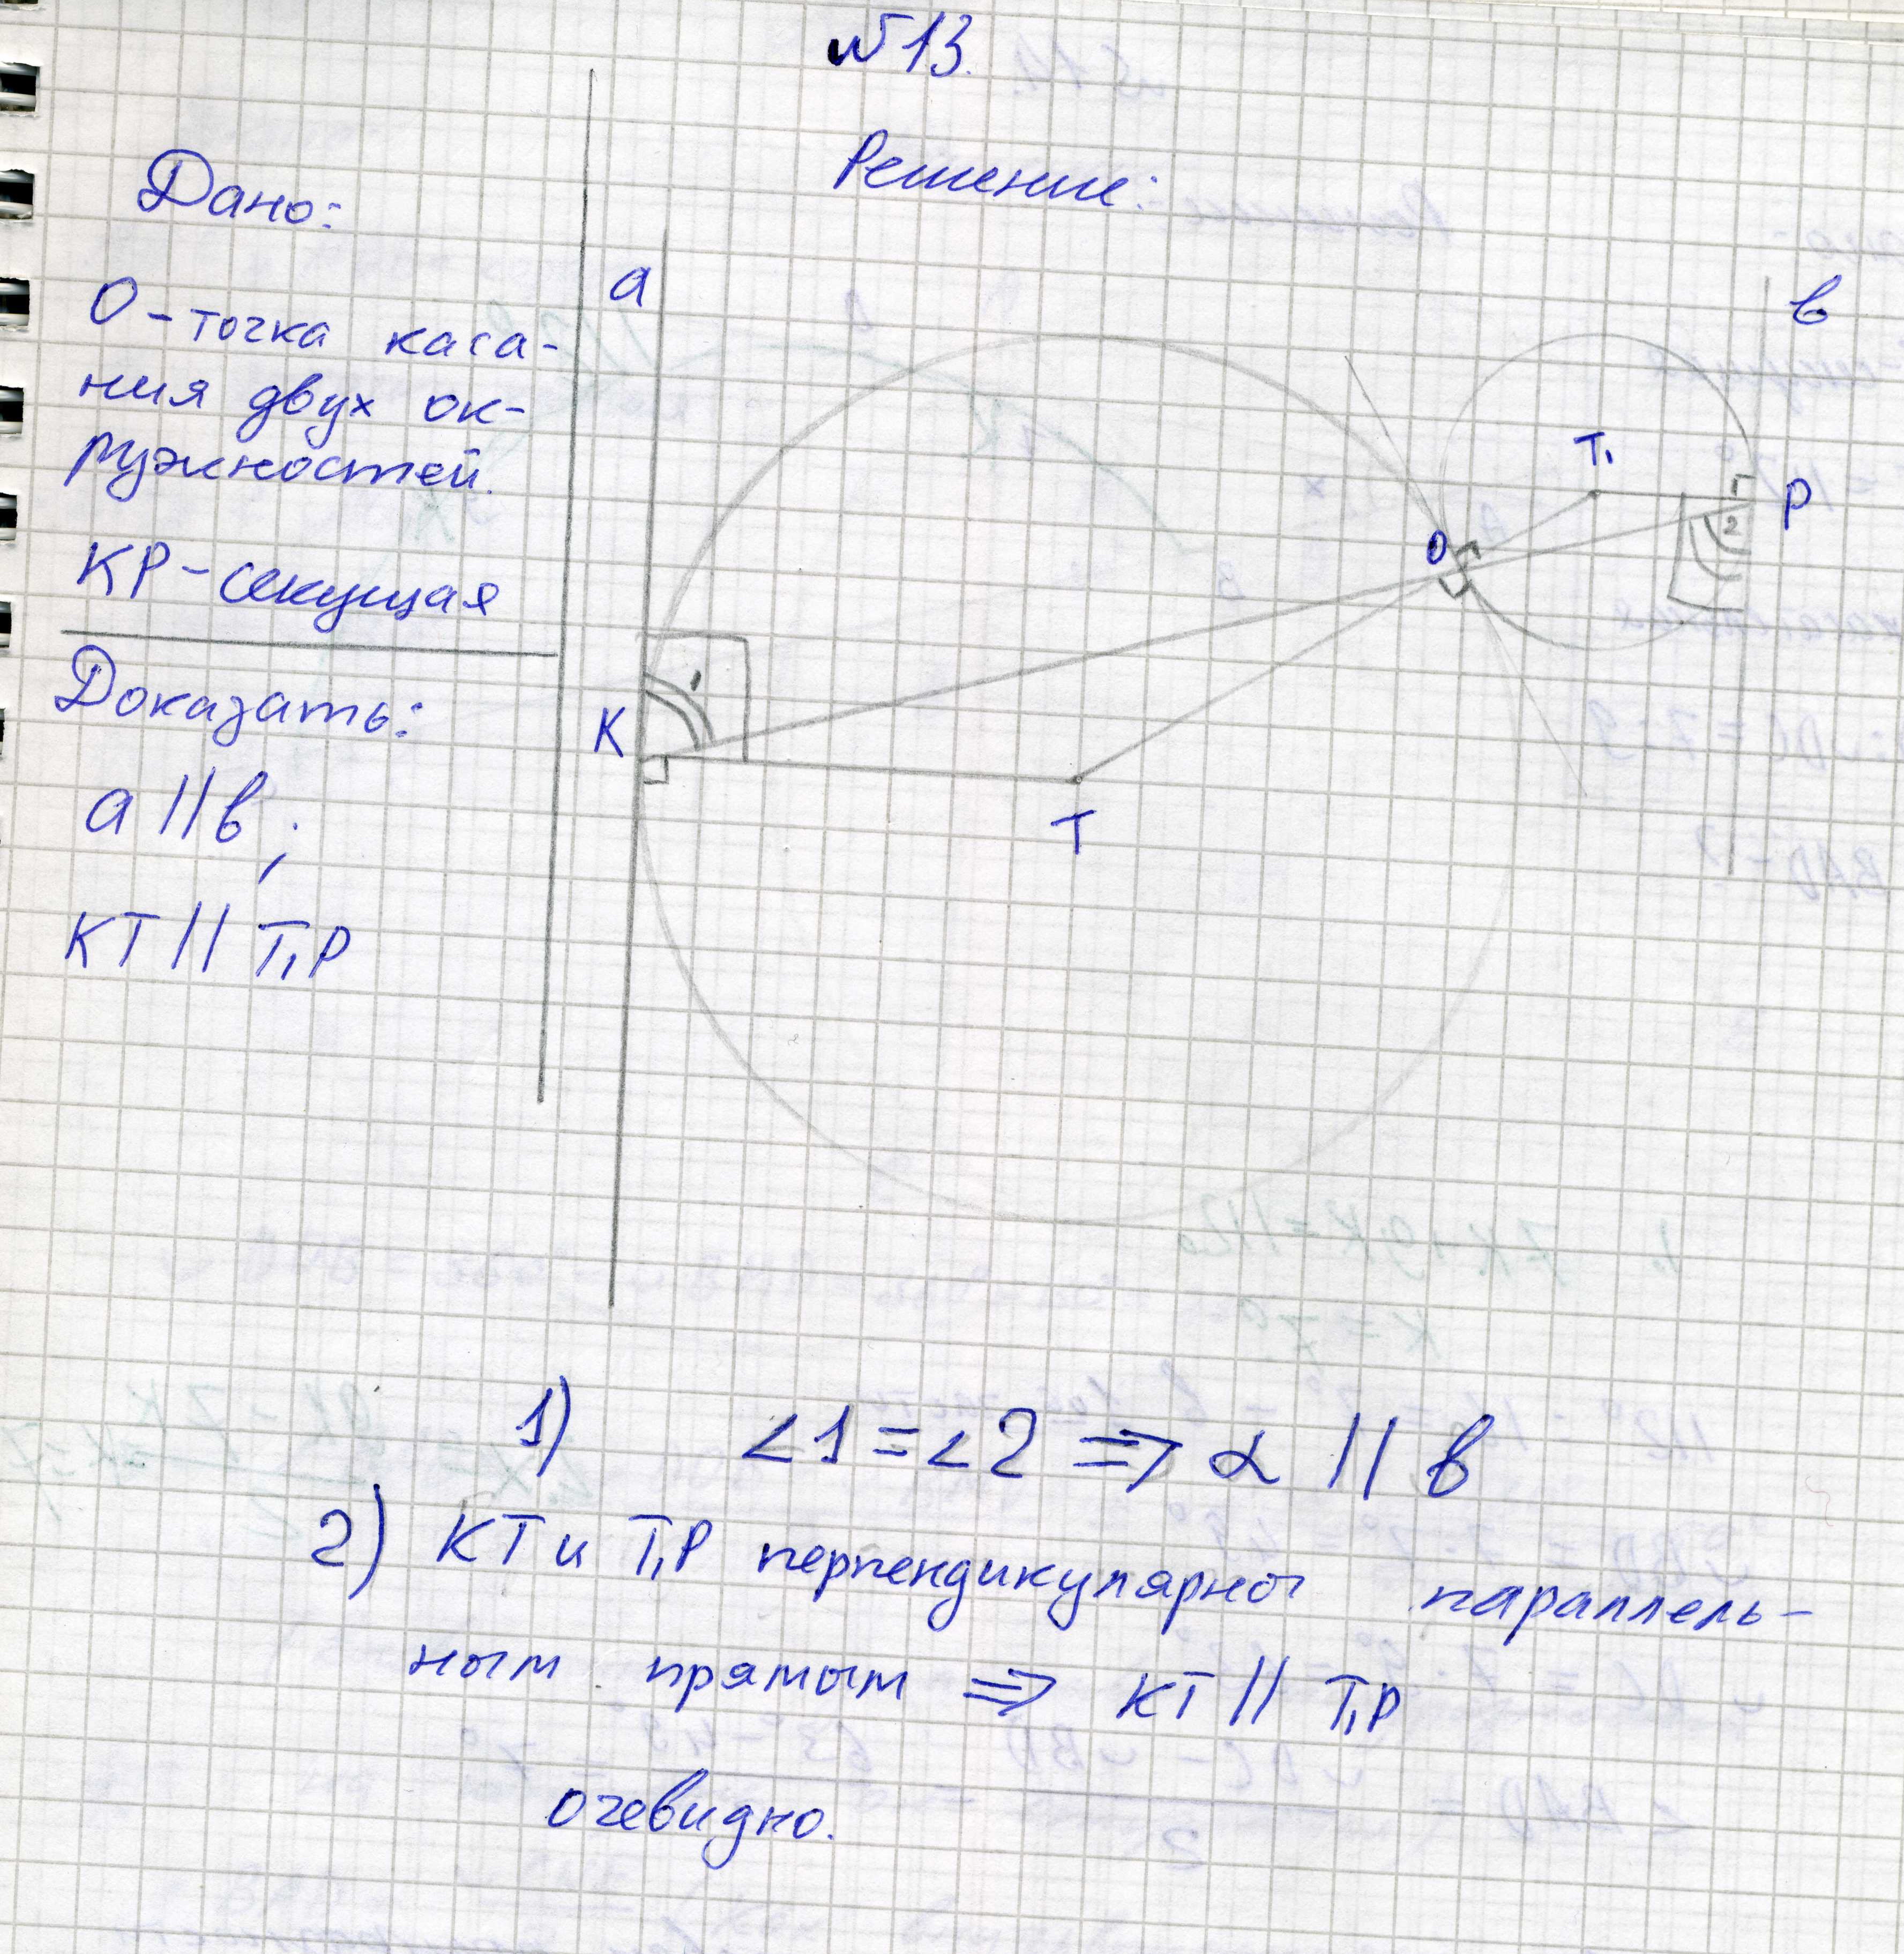 №13.
Дано:
О-точка каса-
ния двух ок-
ружностей.
КР-секущая
Доказать:
а || в;
КТ || Т₁Р
Решение:
а
в
Т₁
Р
О
2
1
К
Т
1) ∠1=∠2 ⇒ а || в
2) КТ и Т₁Р перпендикулярны параллель-
ным прямым ⇒ КТ || Т₁Р
очевидно.